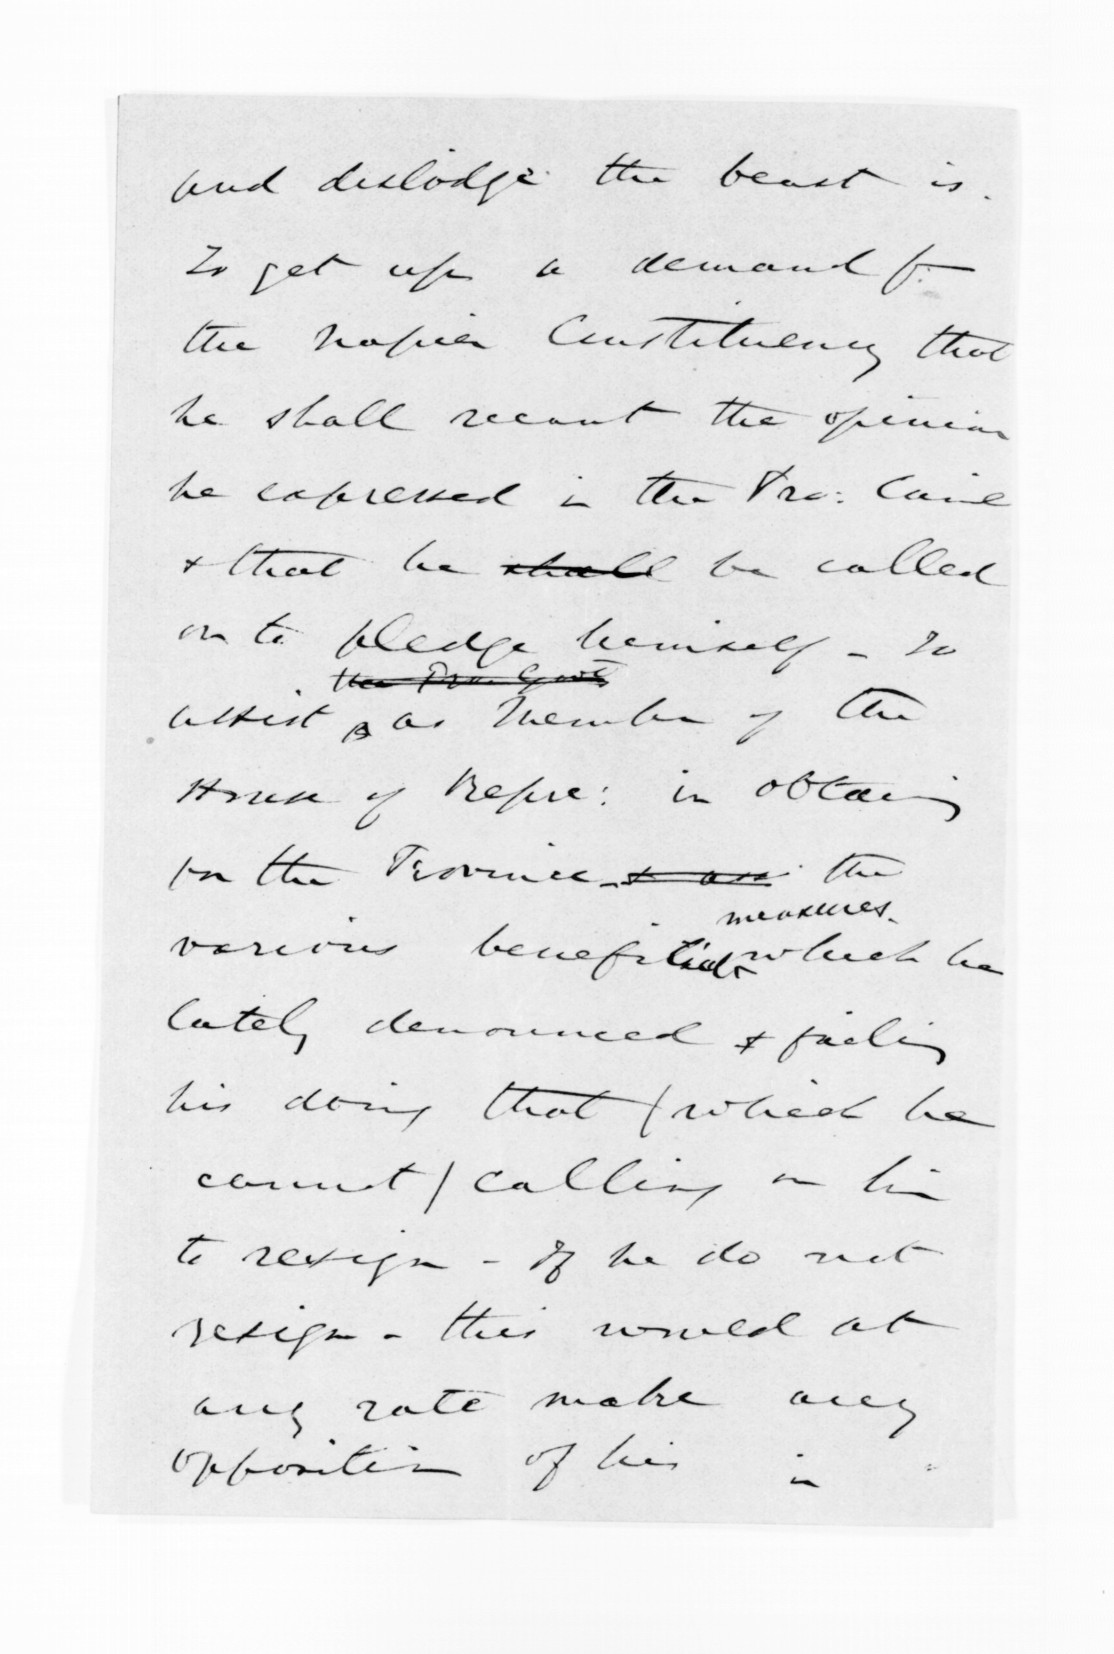 and dislodge the beast is.
To get up a demand f:
the Napier Constituency that
he shall recant the opinion
he expressed in the Pro: Councl
& that he shall be called
on to pledge himself - To
the Pro: Govt
assist as Member of the
House of Repre: in obtaing
for the Province - & ass the
measures.
various beneficial which he
lately denounced & failing
his doing that (which he
cannot) calling on him
to resign - If he do not
resign - this would at
any rate make any
opposition of his in